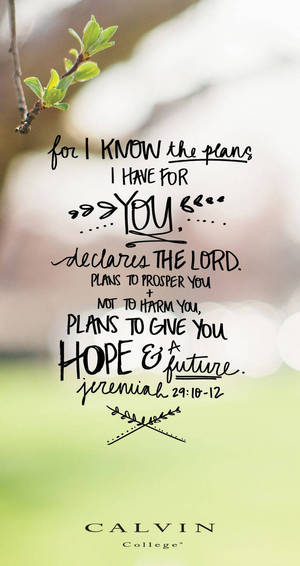 for I KNOW the plans
I HAVE FOR
YOU,
declares THE LORD.
PLANS TO PROSPER YOU
+
NOT TO HARM YOU,
PLANS TO GIVE YOU
HOPE & A
future.
jeremiah 29:10-12
CALVIN
College